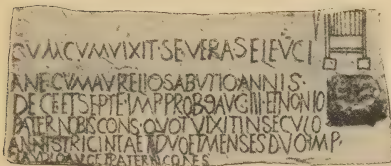 CVMCVMVIXIT·SEVERASELEVCI
ANE·CVMAVRELIOSABVTIOANNIS·
DECEETSEPTEIMPPROBOAVGIIIETNONIO
PATERNOBISCONS·QVOTVIXITINSECVLO
ANNISTRICINTAETDVOETMENSESDVOIMP·
CLAVDIOAVGETPATERNOCONS